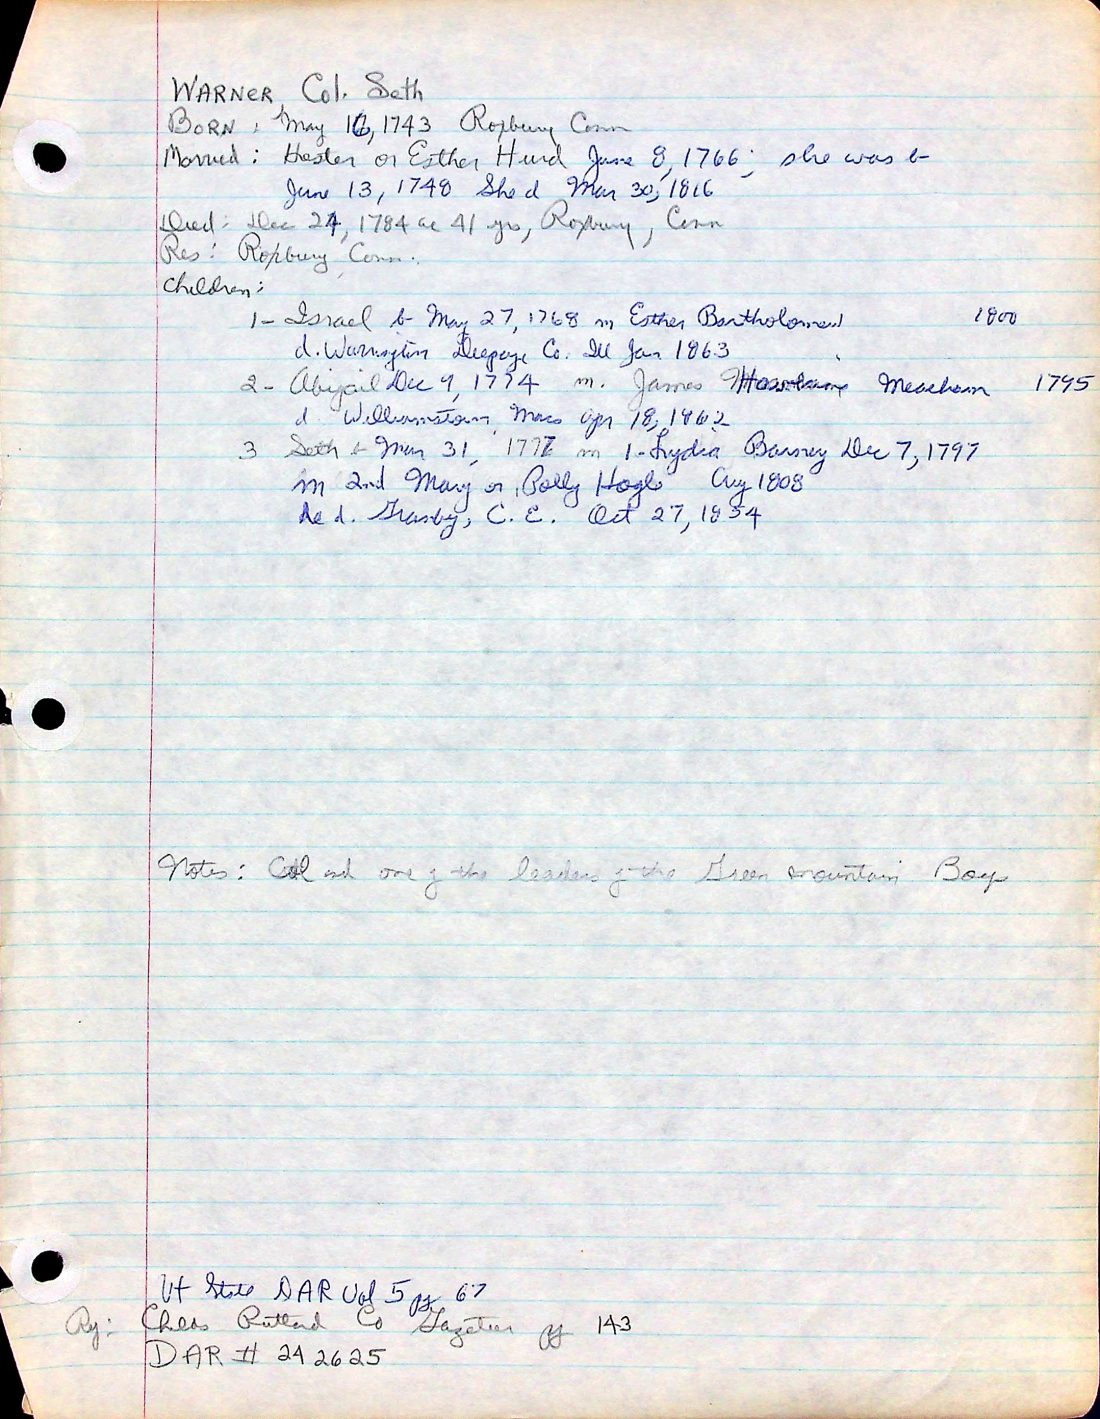 WARNER, Col. Seth
BORN: May 16, 1743 Roxbury Conn
Married: Hester or Esther Hurd June 8, 1766; she was b
June 13, 1748 She d Mar 30, 1816
Died: Dec 24, 1784 ae 41 yrs, Roxbury, Conn
Res: Roxbury Conn.
Children:
1- Israel b May 27, 1768 m Esther Bartholomew 1800
d. Warrington Co. Ill Jan 1863
2- Abigail Dec 9, 1774 m. James Meacham 1795
d Williamstown, Mass Apr 18, 1862
3 Seth b Mar 31, 1777 m 1- Lydia Barney Dec 7, 1797
m 2nd Mary or Polly Hogle Aug 1808
he d. Granby, C. E. Oct 27, 1854
Notes: Col and one of the leaders of the Green Mountain Boys
Vt State DAR Vol 5 pg 67
Childs Rutland Co Gazetteer pg 143
DAR # 242625